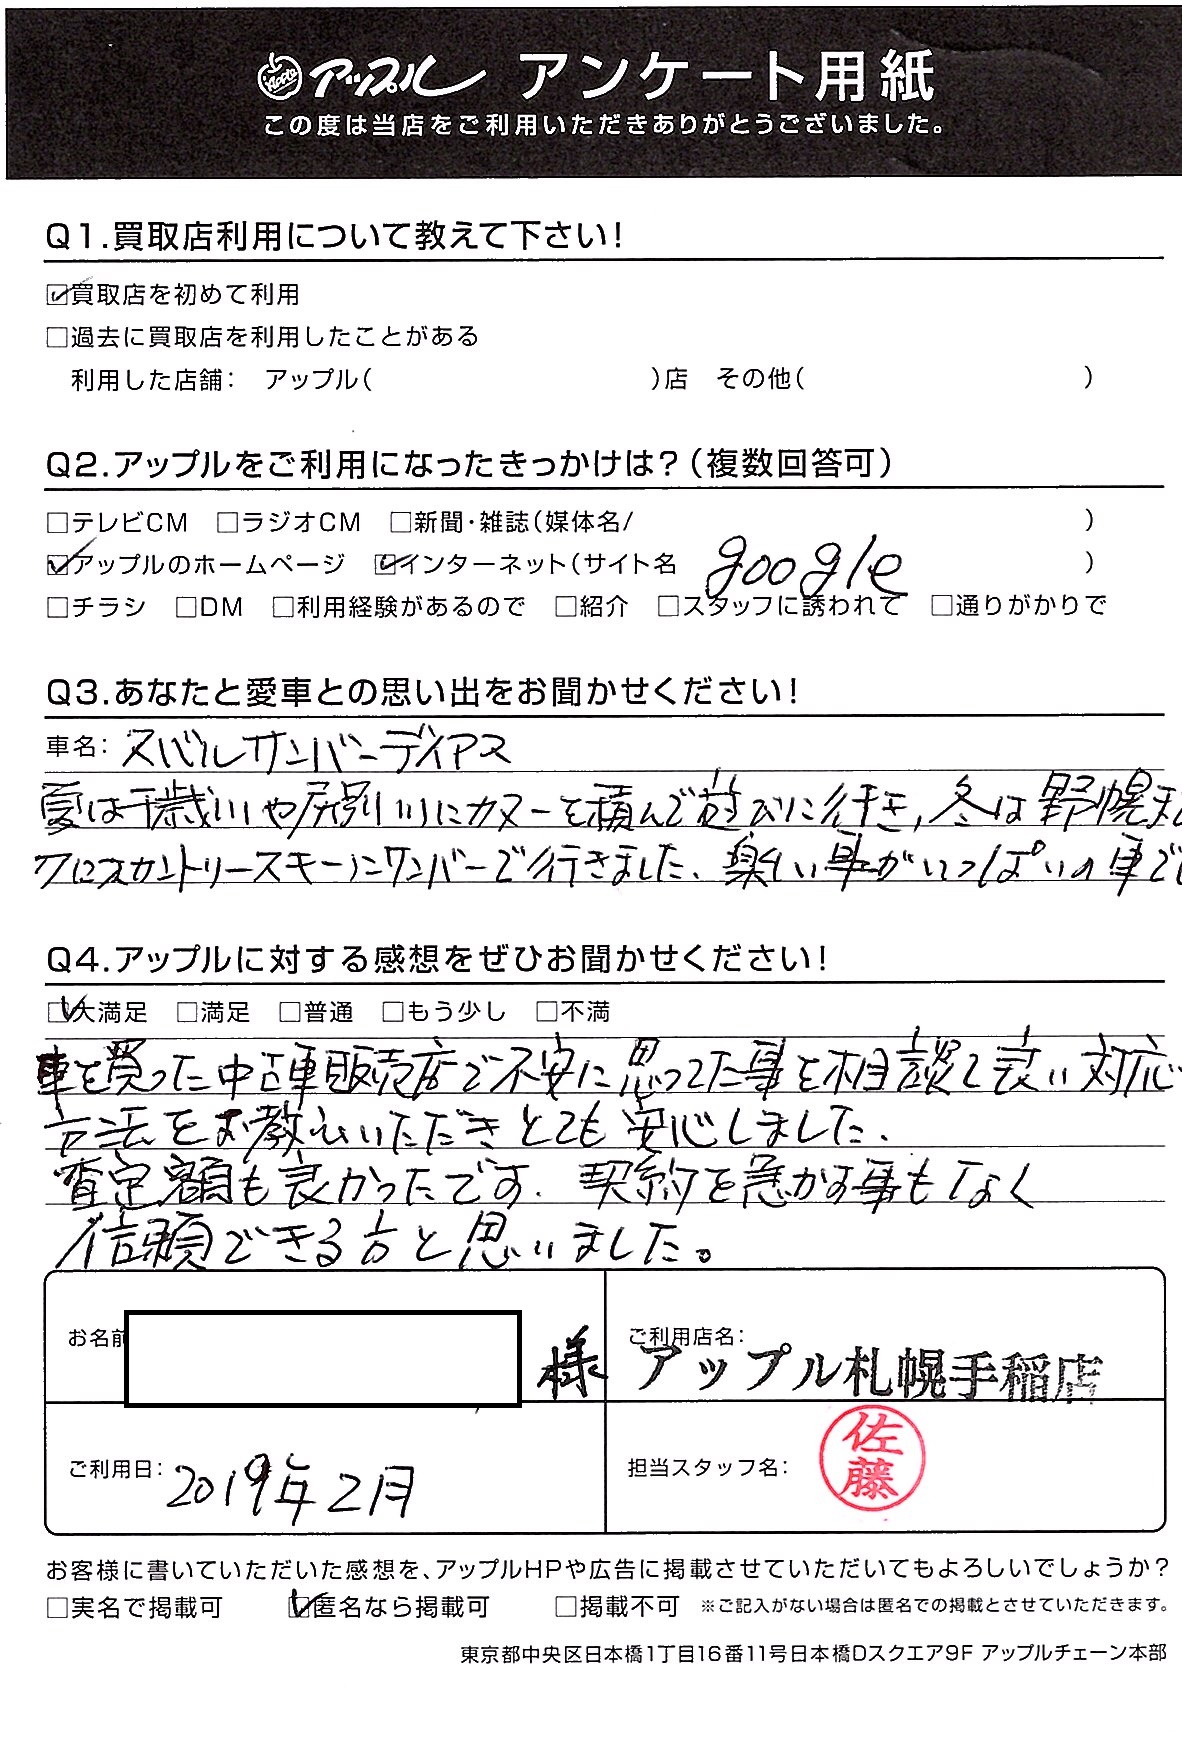 Apple アップル アンケート用紙
この度は当店をご利用いただきありがとうございました。
Q1.買取店利用について教えて下さい!
☑買取店を初めて利用
□過去に買取店を利用したことがある
利用した店舗: アップル( )店 その他( )
Q2.アップルをご利用になったきっかけは?(複数回答可)
□テレビCM □ラジオCM □新聞・雑誌(媒体名/ )
☑アップルのホームページ ☑インターネット(サイト名 google )
□チラシ □DM □利用経験があるので □紹介 □スタッフに誘われて □通りがかりで
Q3.あなたと愛車との思い出をお聞かせください!
車名: スバルサンバーディアス
夏は千歳川や尻別川にカヌーを積んで遊びに行き,冬は野幌まで
クロスカントリースキーにサンバーで行きました、楽しい事がいっぱいの車でし
Q4.アップルに対する感想をぜひお聞かせください!
☑大満足 □満足 □普通 □もう少し □不満
車を買った中古車販売店で不安に思ってた事を相談して良い対応
方法をお教えいただきとても安心しました、
査定額も良かったです、契約を急かす事もなく
信頼できる方と思いました。
お名前 様 ご利用店名:アップル札幌手稲店
ご利用日: 2019年2月 担当スタッフ名: 佐藤
お客様に書いていただいた感想を、アップルHPや広告に掲載させていただいてもよろしいでしょうか?
□実名で掲載可 ☑匿名なら掲載可 □掲載不可 ※ご記入がない場合は匿名での掲載とさせていただきます。
東京都中央区日本橋1丁目16番11号日本橋Dスクエア9F アップルチェーン本部